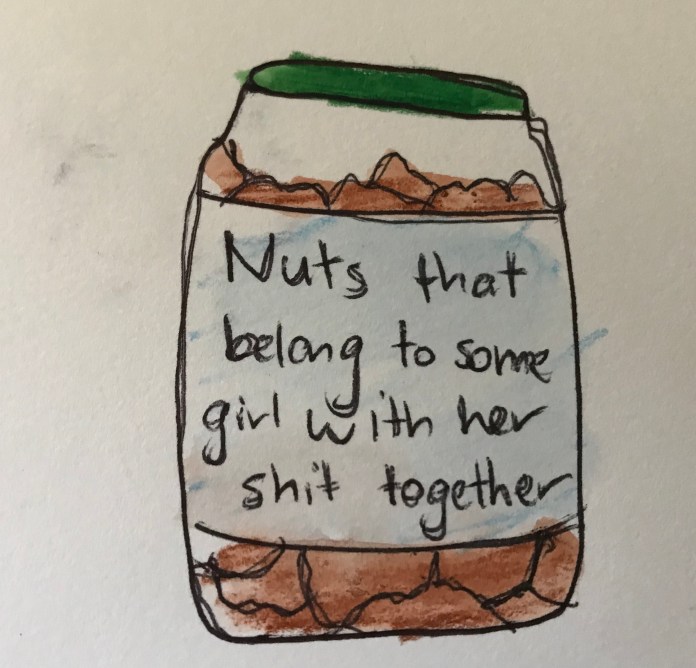 Nuts that
belong to some
girl with her
shit together